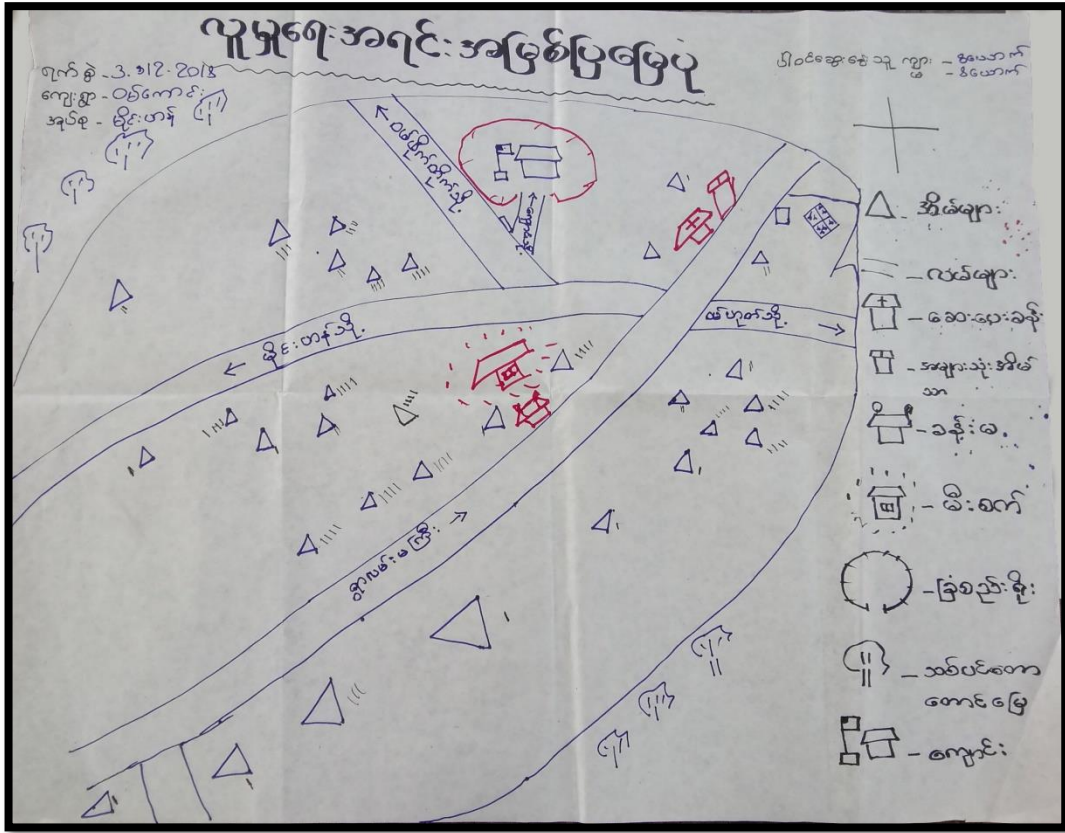 လူမှုရေးအရင်းအမြစ်ပြမြေပုံ
ရက်စွဲ - 3. 12. 2018
ကျေးရွာ - ဝမ်ကောင်း
အုပ်စု - မိုင်းဟန်
ပါဝင်ဆွေးနွေးသူ ကျား -
သို့
← မိုင်းဟန်သို့
သို့ →
ရွာလမ်းမကြီး →
အိမ်များ
- လမ်းများ
- ဆေးပေးခန်း
- အများသုံးအိမ်
သာ
- ခန်းမ
- မီးစက်
- ခြံစည်းရိုး
- သစ်ပင်တော
တောင်မြေ
- ကျောင်း